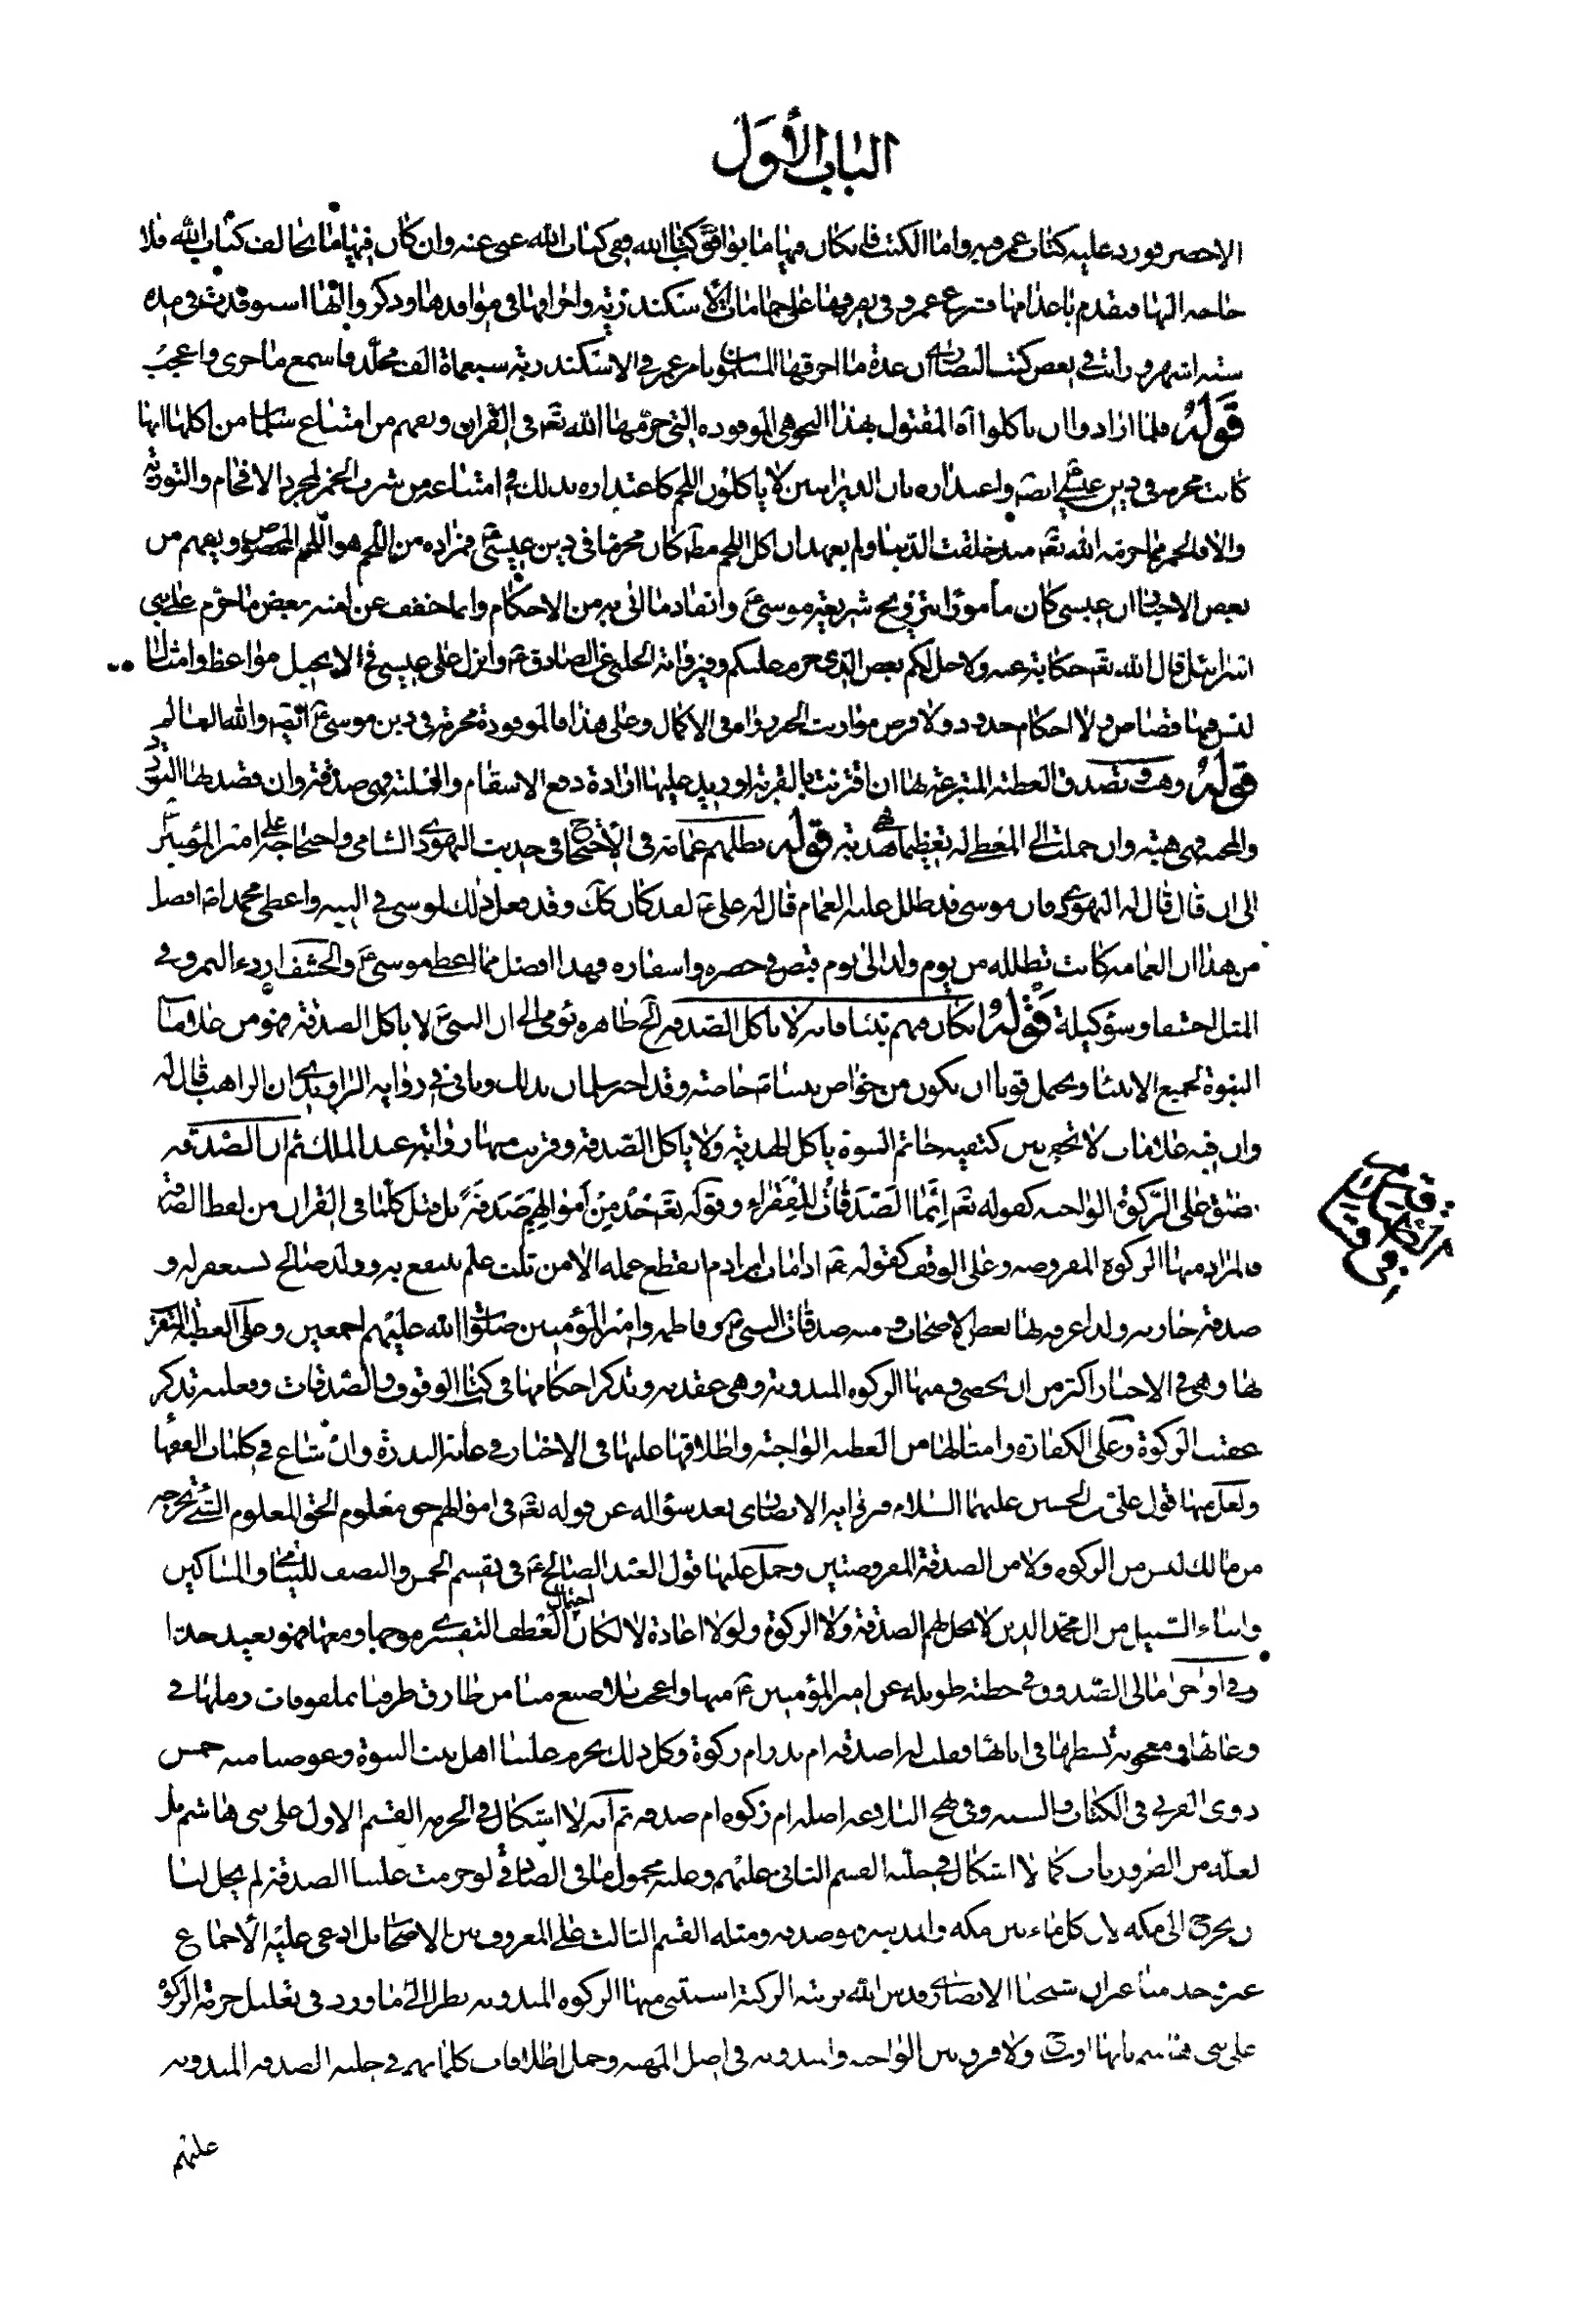 الباب الأول
الاخضر فورد عليه كتاب عمر فيه واما الكتب فان كان فيها ما يوافق كتاب الله ففي كتاب الله عنى عنه وان كان فيها ما يخالف كتاب الله فلا
حاجة اليها فتقدم باعدامها فشرع عمرو في تفريقها على حمامات الاسكندرية واحراقها في مواقدها وذكروا انها استوقدت في مدة
ستة اشهر ورأيت في بعض كتب النصارى ان عدة ما احرقها المسلمون بامر عمر في الاسكندرية سبعمأة الف مجلد فاسمع ما جرى واعجب
قوله فلما ارادوا ان ياكلوا آه المقتول بهذا النحو هي الموقوذه التي حرمها الله تعم في القران ويفهم من امتناع سلمان من اكلها انها
كانت محرمة في دين عيسى ايضه واعتذاره بان الديرانيين لا ياكلون اللحم كاعتذاره بذلك في امتناعه من شرب الخمر لمجرد الافحام والتورية
والا فالخمر مما حرمه الله تعم منذ خلقت الدنيا ولم يعهد ان اكل اللحم مطه كان محرما في دين عيسى ع فمراده من اللحم هو اللحم المخصوص ويفهم من
بعض الاخبار ان عيسى كان مأمورا بترويج شريعة موسى ع وانفاد ما اتى به من الاحكام وانما خفف عن امته بعض ما حرم على بني
اسرائيل قال الله تعم حكاية عنه ولاحل لكم بعض الذي حرم عليكم وفي رواية الحلبي عن الصادق ع وانزل على عيسى في الانجيل مواعظ وامثال
ليس فيها قصاص ولا احكام حدود ولا فرض مواريث الخبر رواه في الاكمال وعلى هذا فالموقوذة محرمة في دين موسى ع ايضه والله العالم
قوله وهب وتصدق العطية المتبرع بها ان اقترنت بالقربة او يريد عليها ارادة دفع الاسقام والبلية فهي صدقة وان قصد بها التودد
والمحبة فهي هبة وان حملت الى المعطى له تعظيما فهي هدية قوله تظلهم غمامة في الاحتجاج في حديث اليهودي الشامي واحتجاجه على امير المؤمنين ع
الى ان قال قال له اليهودي فان موسى قد ظلل عليه الغمام قال له علي ع لقد كان كك وقد فعل ذلك لموسى في التيه واعطي محمد ص افضل
من هذا ان الغمامة كانت تظلله من يوم ولد الى يوم قبض في حضره واسفاره فهذا افضل مما اعطي موسى ع والحشف اردء التمر وفي
المثل احشفا وسؤ كيلة قوله ان كان فيهم نبيا فانه لا ياكل الصدقة الخ ظاهره يومي الى ان النبي ع لا ياكل الصدقة فهو من علامات
النبوة لجميع الانبياء ويحتمل قويا ان يكون من خواص نبينا ص خاصة وقد اخبر سلمان بذلك وياتي في رواية الراوندي ان الراهب قال له
وان فيه علامات لا تخفى بين كتفيه خاتم النبوة ياكل الهدية ولا ياكل الصدقة وقريب منها رواية عبد الملك ثم ان الصدقة
تطلق على الزكوة الواجبة كقوله تعم إنما الصدقات للفقراء وقوله تعم خذ من أموالهم صدقة بل قيل كلما في القران من لفظ الصدقة
فالمراد منها الزكوة المفروضه وعلى الوقف كقوله ع اذا مات ابن ادم انقطع عمله الا من ثلث علم ينتفع به وولد صالح يستغفر له و
صدقة جارية ولذا عرفه لها بعض الاصحاب ومنه صدقات النبي ص وفاطمه وامير المؤمنين صلوات الله عليهم اجمعين وعلى العطية المتقرب
بها وهي في الاخبار اكثر من ان يحصى ومنها الزكوة المندوبة وهي عقد به وتذكر احكامها في كتاب الوقوف والصدقات وقليله تذكر
عقيب الزكوة وعلى الكفارة وامثالها من العطية الواجبة واطلاقها عليها في الاخبار في غاية الندرة وان شاع في كلمات الفقهاء
ولعل منها قول علي بن الحسين عليهما السلام في رواية الانصاري بعد سؤاله عن قوله تعم في اموالهم حق معلوم الحق المعلوم الشئ تخرجه
من مالك ليس من الزكوة ولا من الصدقة المفروضتين وحمل عليها قول العبد الصالح ع في تقسيم الخمس والنصف لليتامى والمساكين
وابناء السبيل من ال محمد الذين لا يحل لهم الصدقة ولا الزكوة ولولا اعادة لا لكان احتمال العطف التفسيري موجها ومعها فهو بعيد جدا
وفي اواخر امالي الصدوق في خطبة طويلة عن امير المؤمنين ع فيها واعجب بلا صنع منا من طارق طرقنا بملفوفات زملها في
وعائها ومعجونة بسطها في انائها فقلت له اصدقة ام نذر ام زكوة وكل ذلك يحرم علينا اهل بيت النبوة وعوضنا منه خمس
ذوي القربى في الكتاب والسنه وفي نهج البلاغه اصله ام زكوه ام صدقه ثم انه لا اشكال في الحرمة القسم الاول على بني هاشم بل
لعله من الضروريات كما لا اشكال في حلية القسم الثاني عليهم وعليه محمول ما في الصادقي لو حرمت علينا الصدقة لم يحل لنا
ان نخرج الى مكه لان كل ماء بين مكه والمدينه فهو صدقه ومثله القسم الثالث على المعروف بين الاصحاب بل ادعي عليه الاجماع
عن حد منا عن ان شيخنا الانصاري قدس الله تربته الزكية استثنى منها الزكوه المندوبه نظرا الى ما ورد في تعليل حرمة الزكوة
على بني هاشم بانها اوساخ ولا فرق بين الواجبه والمندوبه في اصل المهيه وحمل اطلاقات كلماتهم في حلية الصدقه المندوبه
عليهم